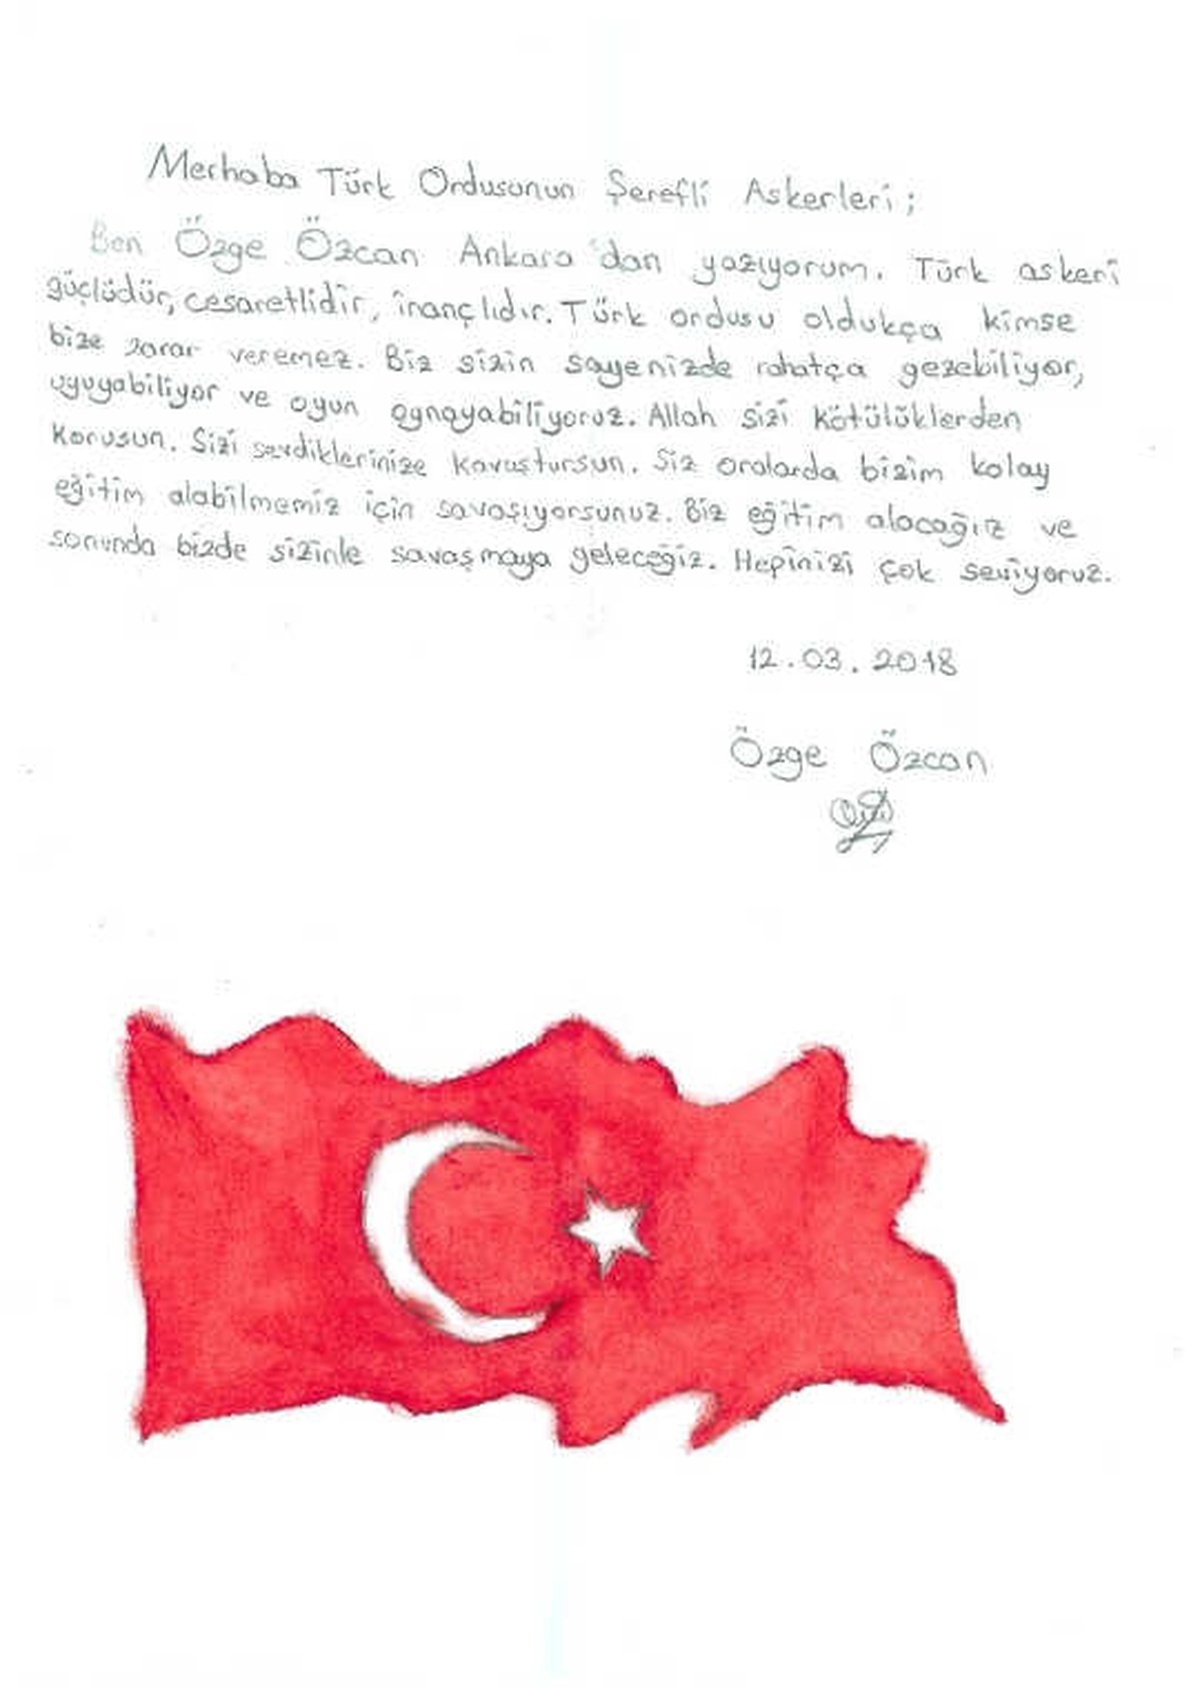 Merhaba Türk Ordusunun Şerefli Askerleri;
Ben Özge Özcan Ankara'dan yazıyorum. Türk askeri
güçlüdür, cesaretlidir, inançlıdır. Türk ordusu oldukça kimse
bize zarar veremez. Biz sizin sayenizde rahatça gezebiliyor,
uyuyabiliyor ve oyun oynayabiliyoruz. Allah sizi kötülüklerden
korusun. Sizi sevdiklerinize kavuştursun. Siz oralarda bizim kolay
eğitim alabilmemiz için savaşıyorsunuz. Biz eğitim alacağız ve
sonunda bizde sizinle savaşmaya geleceğiz. Hepinizi çok seviyoruz.
12.03.2018
Özge Özcan